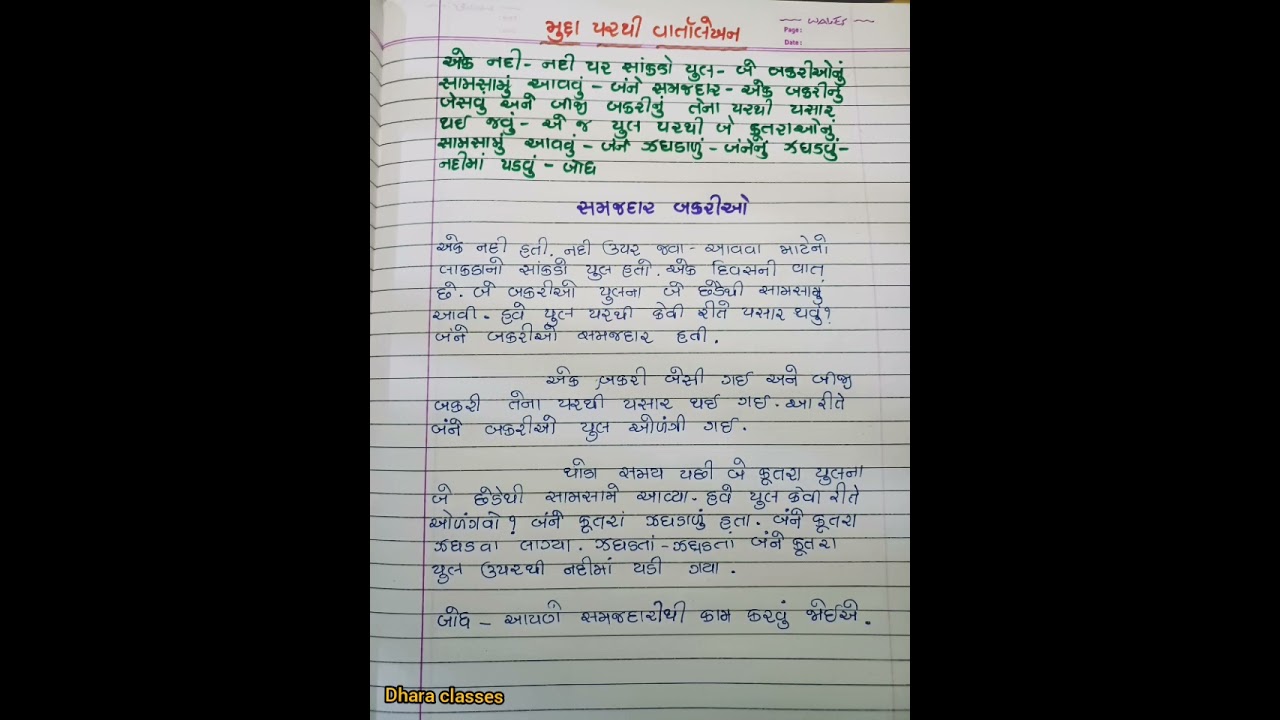 મુદ્દા પરથી વાર્તાલેખન
Page:
Date:
એક નદી - નદી પર સાંકડો પુલ - બે બકરીઓનું
સામસામું આવવું - બંને સમજદાર - એક બકરીનું
બેસવું અને બીજી બકરીનું તેના પરથી પસાર
થઈ જવું - એ જ પુલ પરથી બે કૂતરાઓનું
સામસામું આવવું - બંને ઝઘડાળું - બંનેનું ઝઘડવું -
નદીમાં પડવું - બોધ
સમજદાર બકરીઓ
એક નદી હતી. નદી ઉપર જવા - આવવા માટેનો
લાકડાનો સાંકડો પુલ હતો. એક દિવસની વાત
છે. બે બકરીઓ પુલના બે છેડેથી સામસામું
આવી. હવે પુલ પરથી કેવી રીતે પસાર થવું?
બંને બકરીઓ સમજદાર હતી.
એક બકરી બેસી ગઈ અને બીજી
બકરી તેના પરથી પસાર થઈ ગઈ. આ રીતે
બંને બકરીઓ પુલ ઓળંગી ગઈ.
થોડા સમય પછી બે કૂતરા પુલના
બે છેડેથી સામસામે આવ્યા. હવે પુલ કેવી રીતે
ઓળંગવો? બંને કૂતરાં ઝઘડાળું હતા. બંને કૂતરા
ઝઘડવા લાગ્યા. ઝઘડતાં - ઝઘડતાં બંને કૂતરા
પુલ ઉપરથી નદીમાં પડી ગયા.
બોધ - આપણે સમજદારીથી કામ કરવું જોઈએ.
Dhara classes